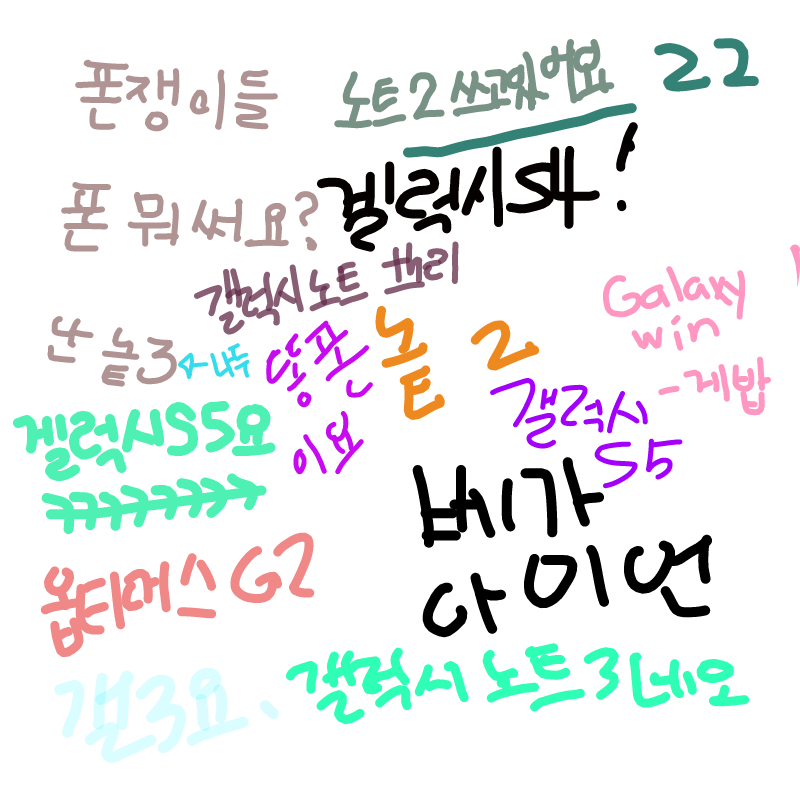 폰쟁이들
노트2 쓰고있어요
22
폰 뭐써요?
겔럭시S4!
갤럭시노트 쓰리
Galaxy
win
-게밥
난 놑3
←나두
똥폰
이요
놑 2
갤럭시
S5
겔럭시S5요
ㅋㅋㅋㅋㅋㅋㅋ
베가
아이언
옵티머스 G2
갤3요.
갤럭시 노트3네오